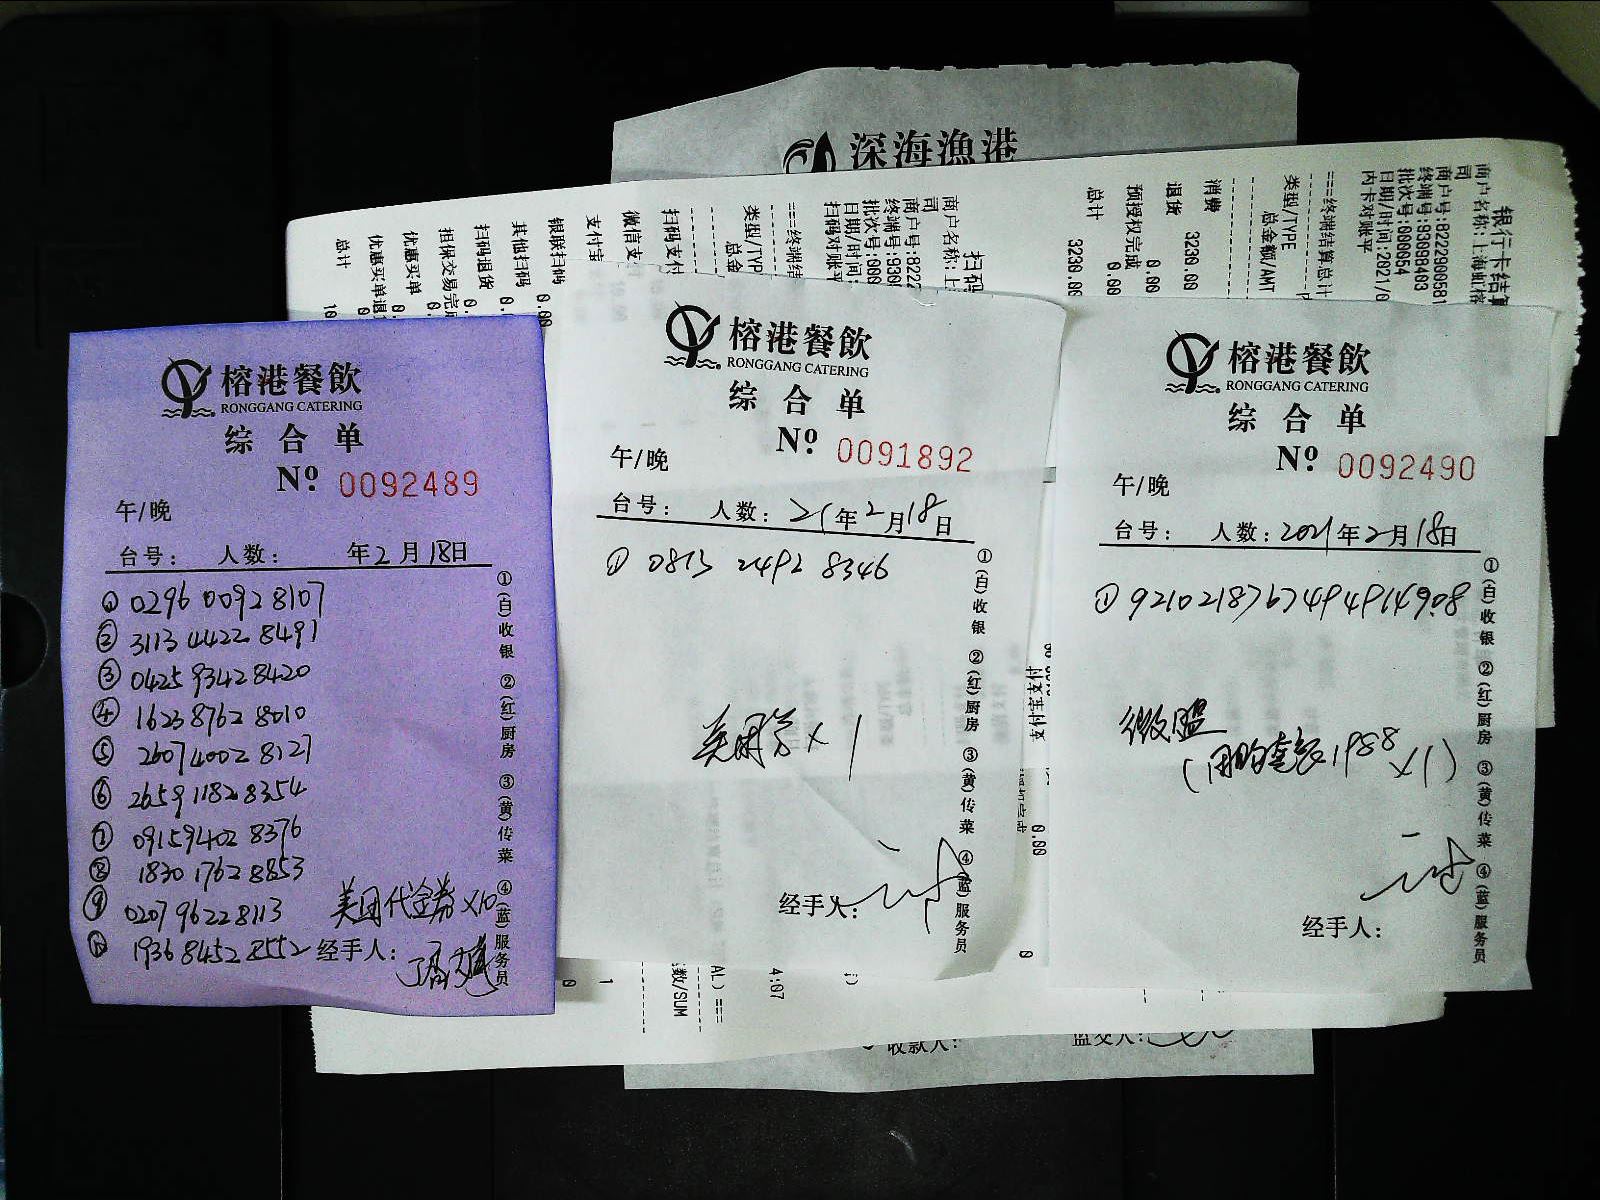 深海漁港
银行卡结算
商户名称:上海虹榕
司
商户号:8222900581
终端号:9369B403
批次号:000054
日期/时间:2021/0
内卡对账平
===终端结算总计
类型/TYPE
总金额/AMT
消费
3230.00
退货
0.00
预授权完成
0.00
总计
3230.00
扫码
商户名称:上
司
商户号:8222
终端号:9369
批次号:000
日期/时间:
扫码对账平
===终端结
类型/TYP
总金
扫码支付
微信支付
支付宝
银联扫码 0.00
其他扫码 0.
扫码退货 0.
担保交易完成 0.
优惠买单 0.
优惠买单退 0
总计 10
榕港餐飲
RONGGANG CATERING
综合单
Nº 0092489
午/晚
台号： 人数： 年2月18日
① 0296 0092 8107
② 3113 4422 8491
③ 0425 9342 8420
④ 1623 8762 8010
⑤ 2607 4002 8127
⑥ 2659 1182 8354
⑦ 0915 9402 8376
⑧ 1830 1762 8853
⑨ 0207 9622 8113
⑩ 1936 8452 8552
美团代金券×10
经手人：
①(白)收银 ②(红)厨房 ③(黄)传菜 ④(蓝)服务员
榕港餐飲
RONGGANG CATERING
综合单
Nº 0091892
午/晚
台号： 人数： 21年2月18日
① 0813 2492 8346
×1
经手人：
①(白)收银 ②(红)厨房 ③(黄)传菜 ④(蓝)服务员
榕港餐飲
RONGGANG CATERING
综合单
Nº 0092490
午/晚
台号： 人数： 2021年2月18日
① 9210218767494914908
微盟
(团购套餐1988 ×1)
经手人：
①(白)收银 ②(红)厨房 ③(黄)传菜 ④(蓝)服务员
0.00
0
4:07
数/SUM
AL) ===
1
0
收款人：
监交人：